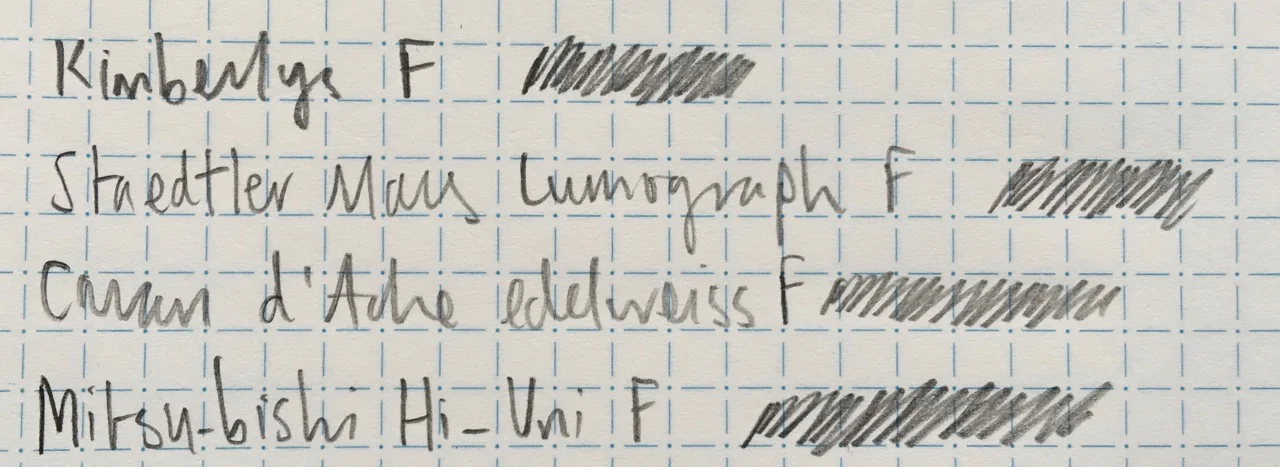 Kimberlys F
Staedtler Mars Lumograph F
Caran d'Ache edelweiss F
Mitsu-bishi Hi-Uni F